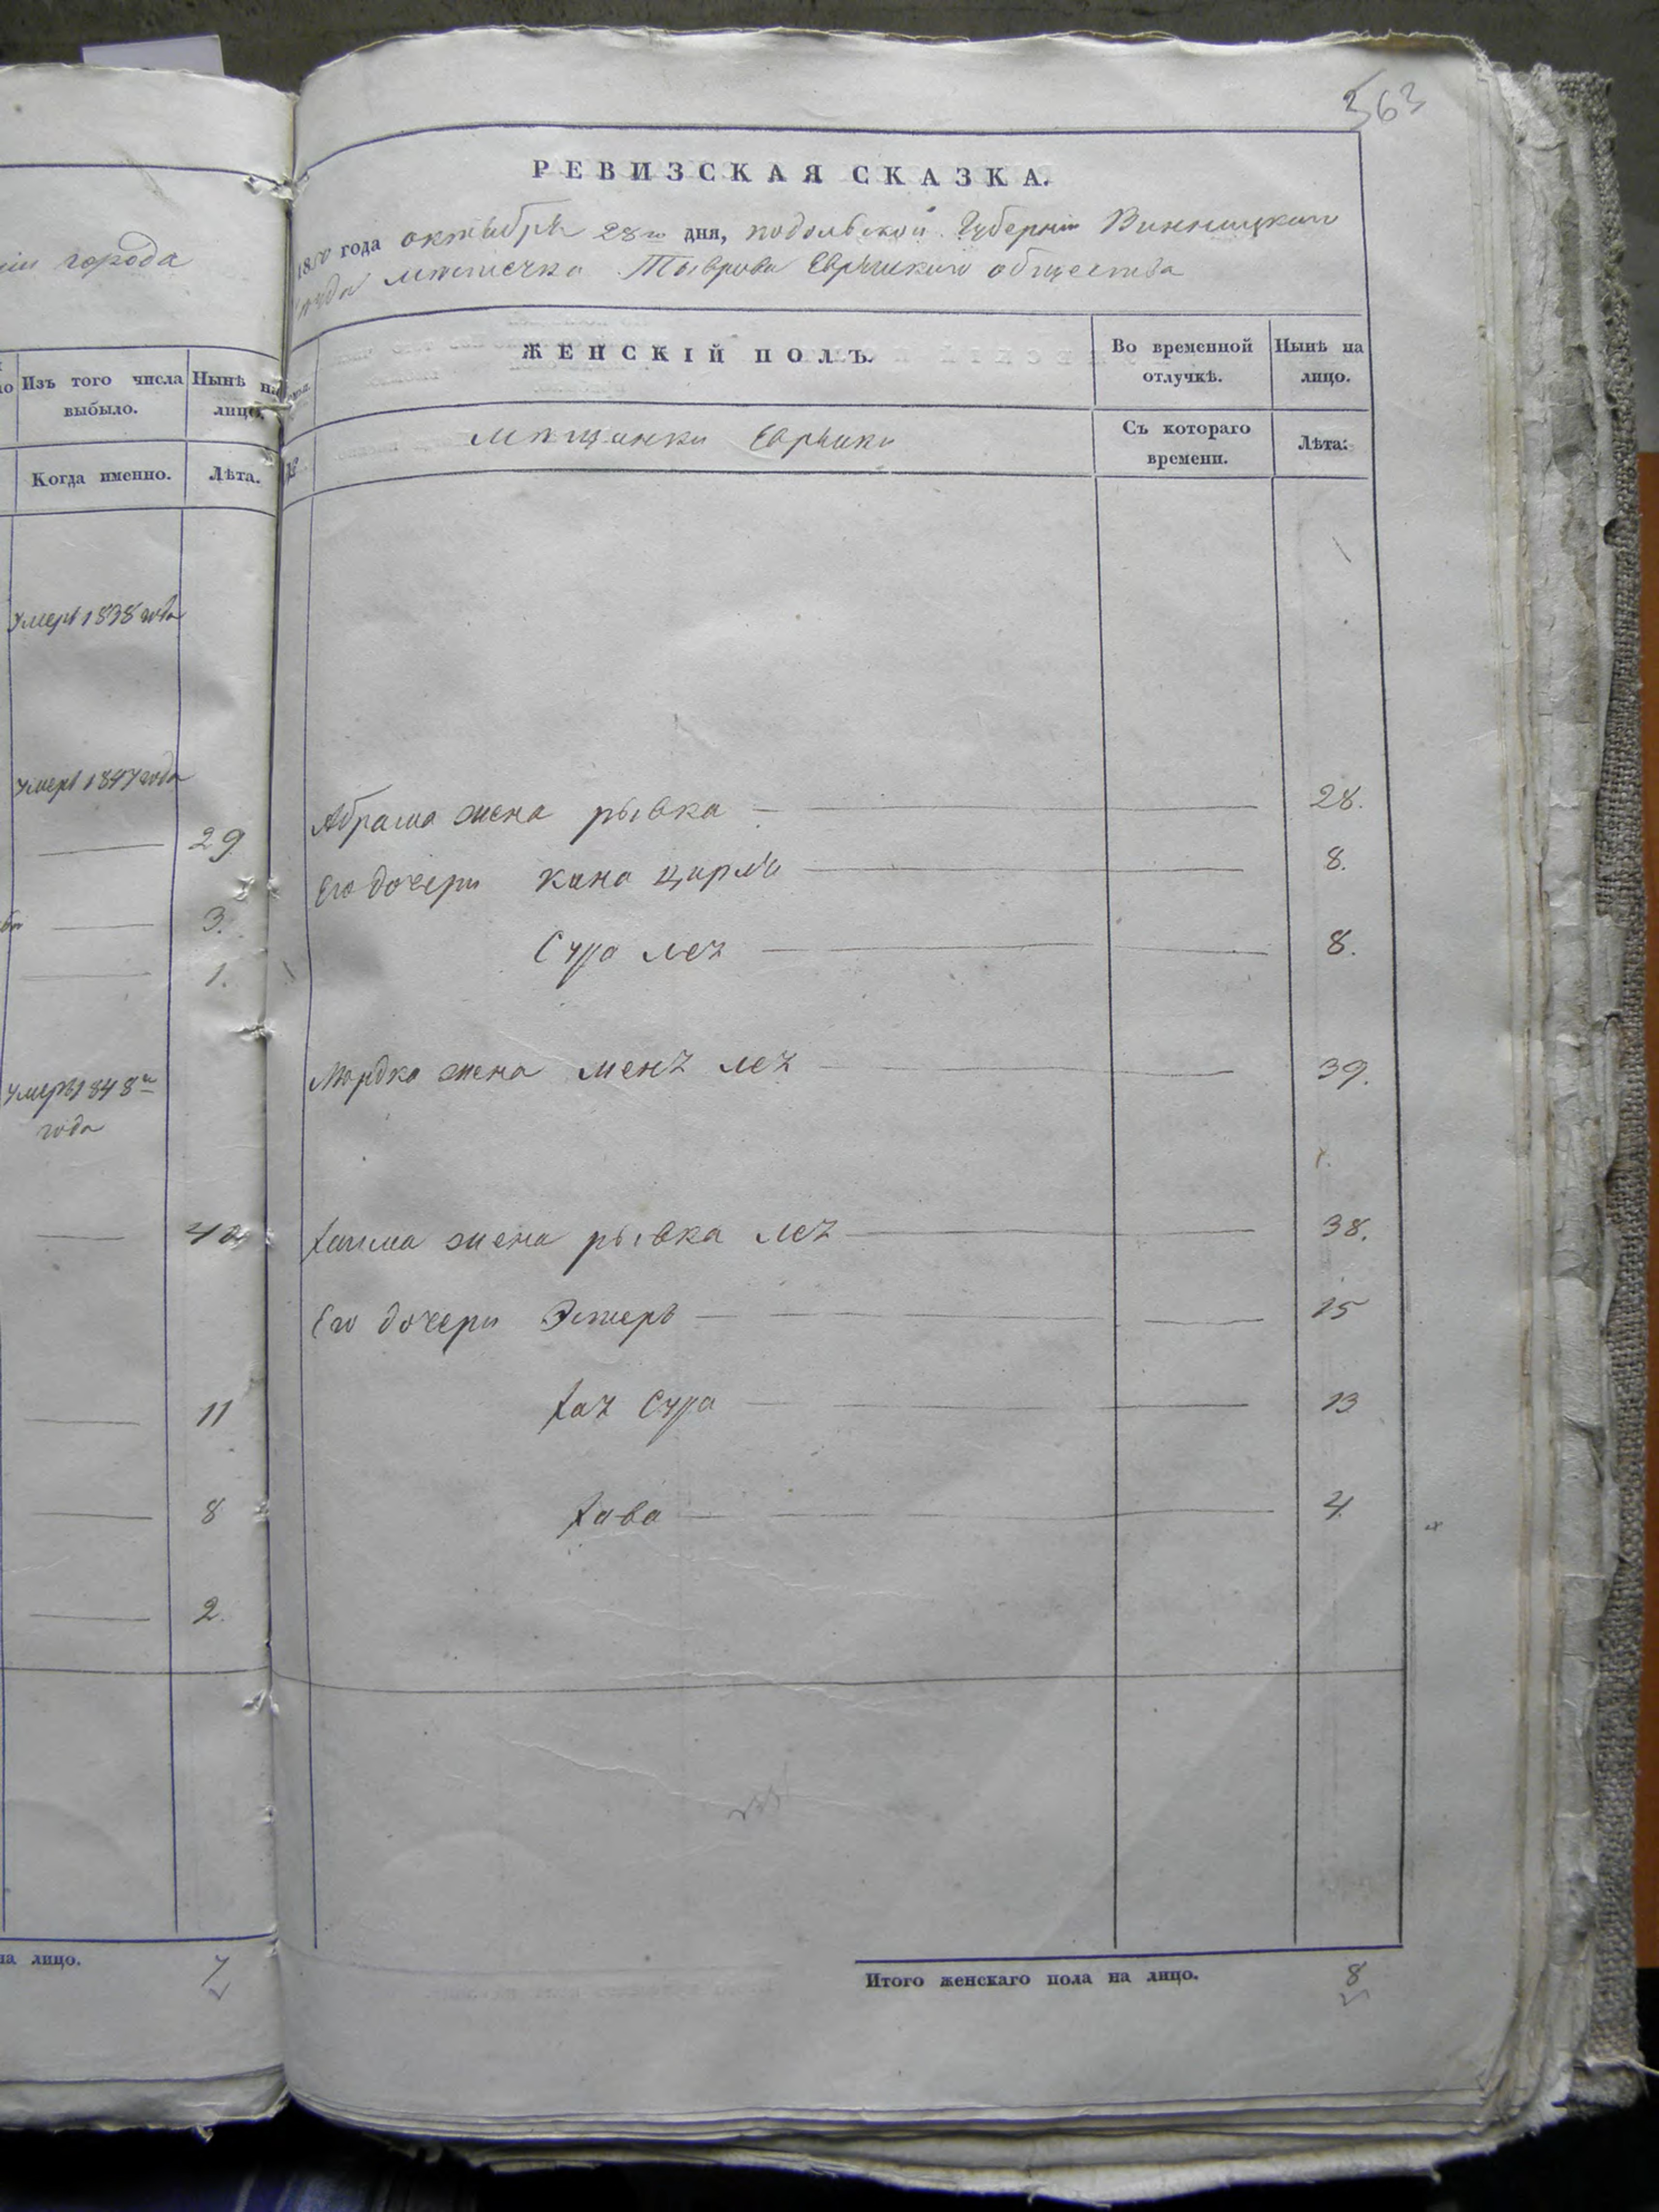 ніи города
Изъ того числа выбыло.
Нынѣ на лицо.
Когда именно.
Лѣта.
Умеръ 1838 года
Умеръ 1847 года
29
3.
1.
Умеръ 1848го
года
42
11
8
2.
на лицо.
7
563
РЕВИЗСКАЯ СКАЗКА.
1850 года октября 28го дня, подольской Губерніи Винницкаго
уѣзда мѣстечка Тыврова Еврейскаго общества
ЖЕНСКІЙ ПОЛЪ.
Во временной
отлучкѣ.
Нынѣ на
лицо.
мѣщанки Еврейки
Съ котораго
времени.
Лѣта.
Абрама жена рывка 28.
Его дочери хана цирля 8.
Сура лея 8.
Мордка жена меня лея 39.
хаима жена рывка лея 38.
Его дочери Эстеръ 15
хая Сура 13
хава 4.
Итого женскаго пола на лицо. 8